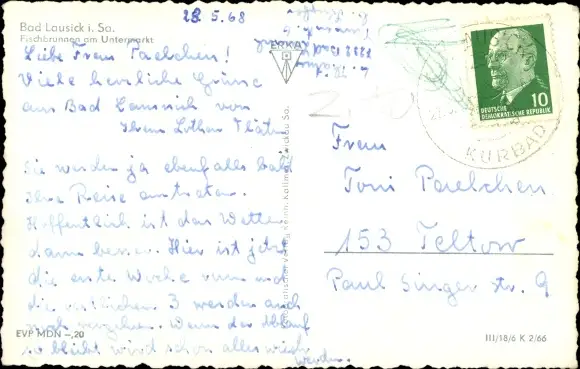 28.5.68
Bad Lausick i. Sa.
Fischbrunnen am Untermarkt
Liebe Frau Paelchen!
Viele herzliche Grüße
aus Bad Lausick von
Ihrem Lothar
Sie werden ja ebenfalls bald
Ihre Reise antreten.
Hoffentlich ist das Wetter
dann besser. Hier ist jetzt
die erste Woche rum und
die restlichen 3 werden auch
noch vergehen. Wenn der Ablauf
so bleibt wird schon alles
werden.
EVP MDN -,20
ERKA
DEUTSCHE
DEMOKRATISCHE REPUBLIK
10
KURBAD
Frau
Toni Paelchen
153 Teltow
Paul Singer str. 9
III/18/6 K 2/66